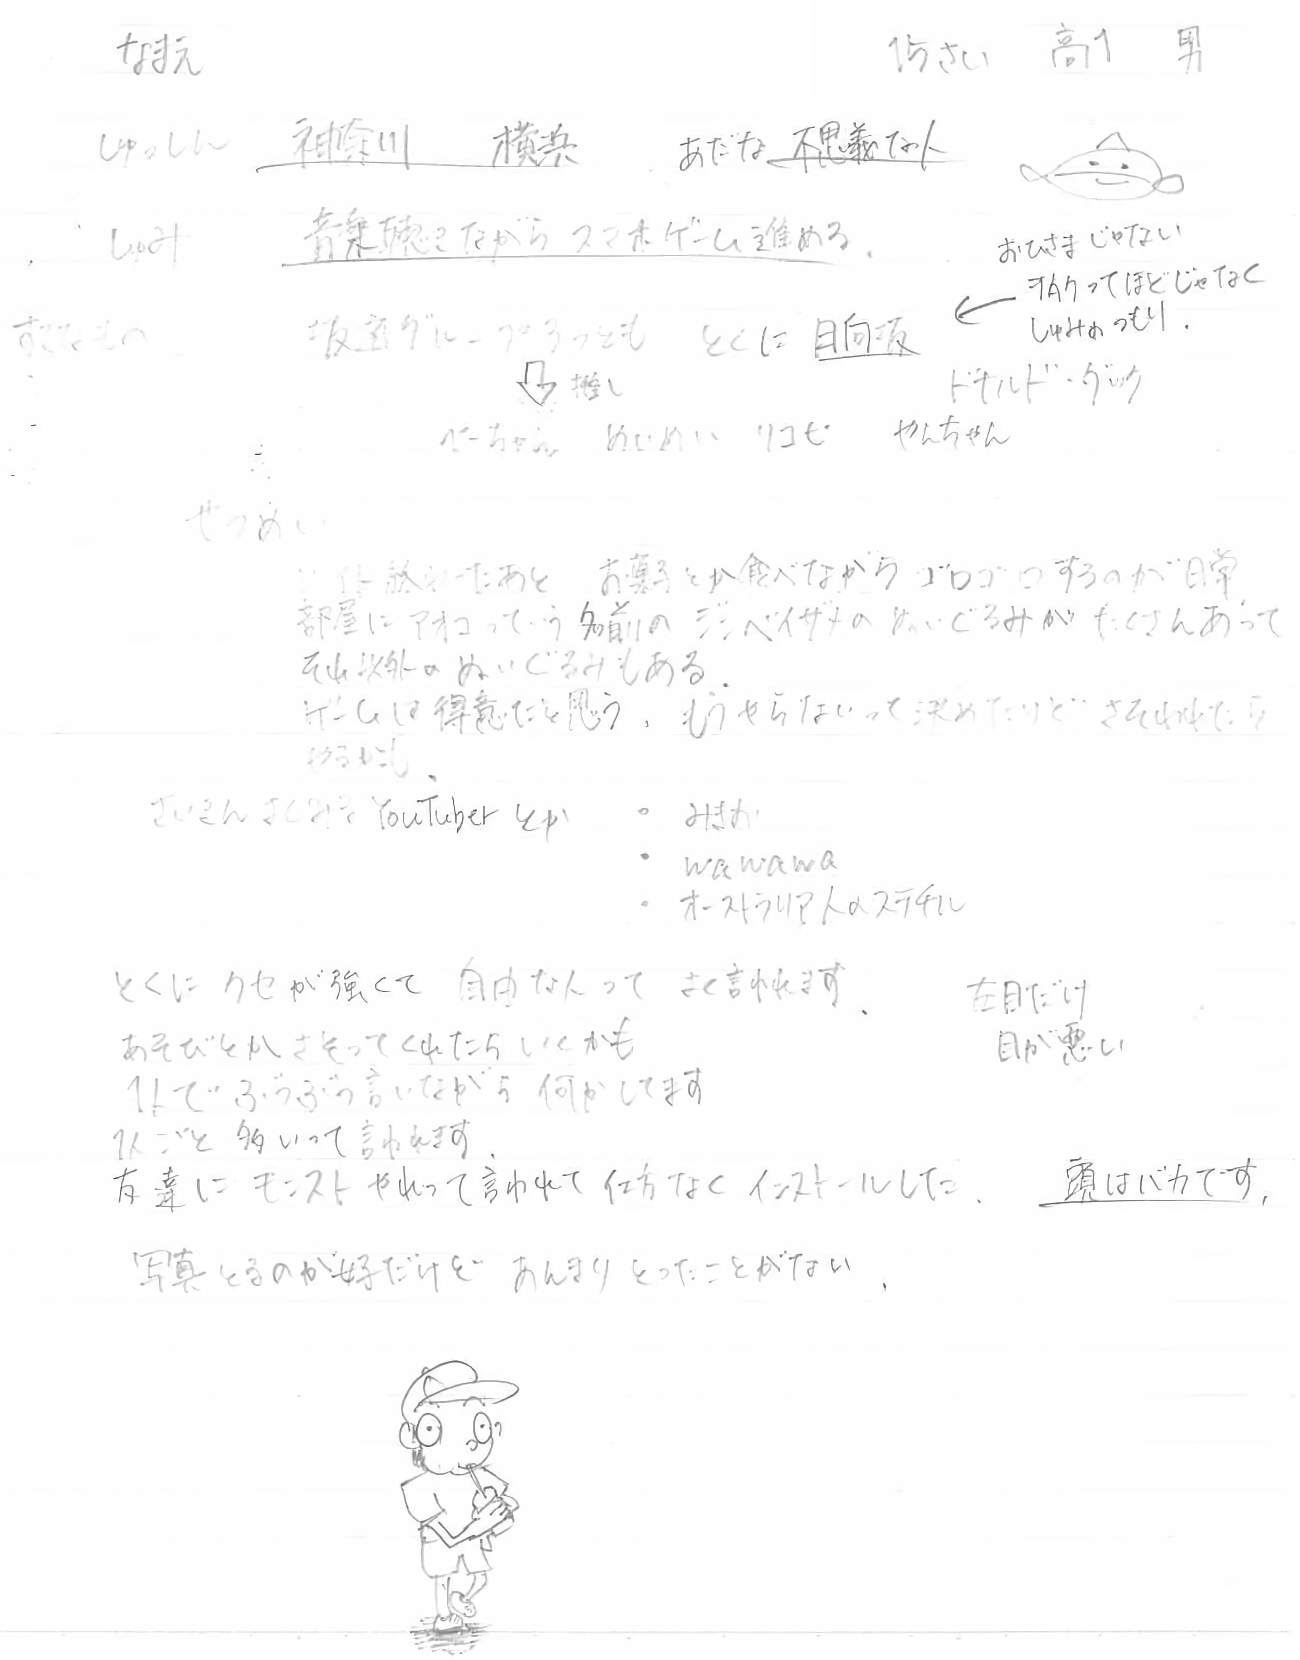 なまえ 15さい 高1 男
しゅっしん 神奈川 横浜 あだな 不思義な人
しゅみ 音楽聴きながらスマホゲーム進める.
おひさまじゃない
オタクってほどじゃなく
しゅみのつもり.
すきなもの 坂道グループ とくに 日向坂
推し ドナルド・ダック
べーちゃん めいめい リコピ やんちゃん
せつめい
終わったあと お菓子とか食べながらゴロゴロするのが日常
部屋にアオコっていう名前のジンベイザメのぬいぐるみがたくさんあって
それ以外のぬいぐるみもある.
ゲームは得意だと思う. もうやらないって決めたけどさそわれたら
やるかも.
さいきんよくみる YouTuberとか ・ みまか
・ wawawa
・ オーストラリア人のステチル
とくにクセが強くて 自由な人って よく言われます.
左目だけ
目が悪い
あそびとかさそってくれたらいくかも
1人でぶつぶつ言いながら何かしてます
1人ごと多いって言われます.
友達にモンストやれって言われて仕方なくインストールした. 頭はバカです.
写真とるのが好だけど あんまりとったことがない.